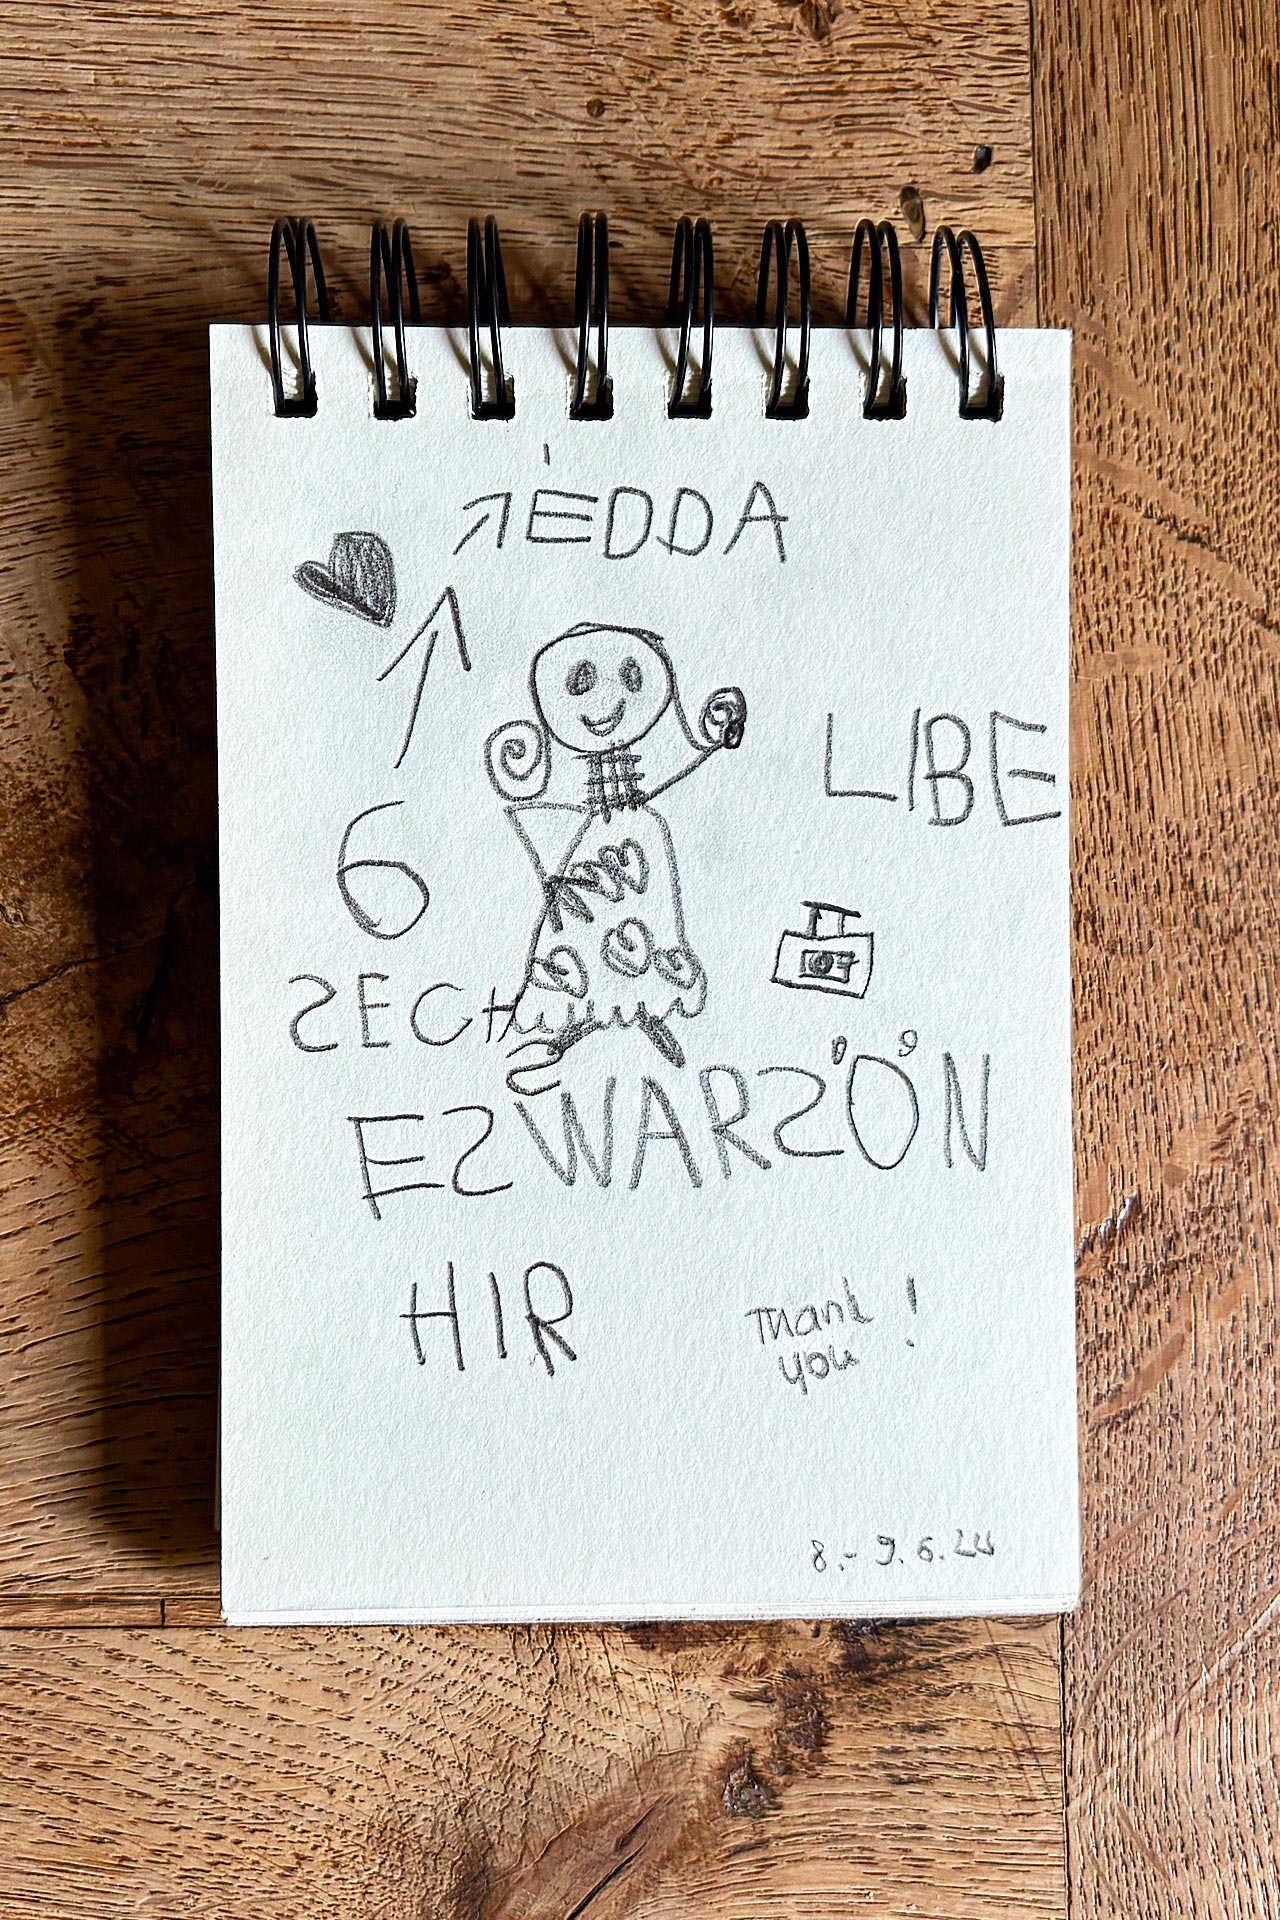 EDDA
LIBE
6
SECHS
ESWARSÖN
HIR
Thank
you !
8.-9.6.24